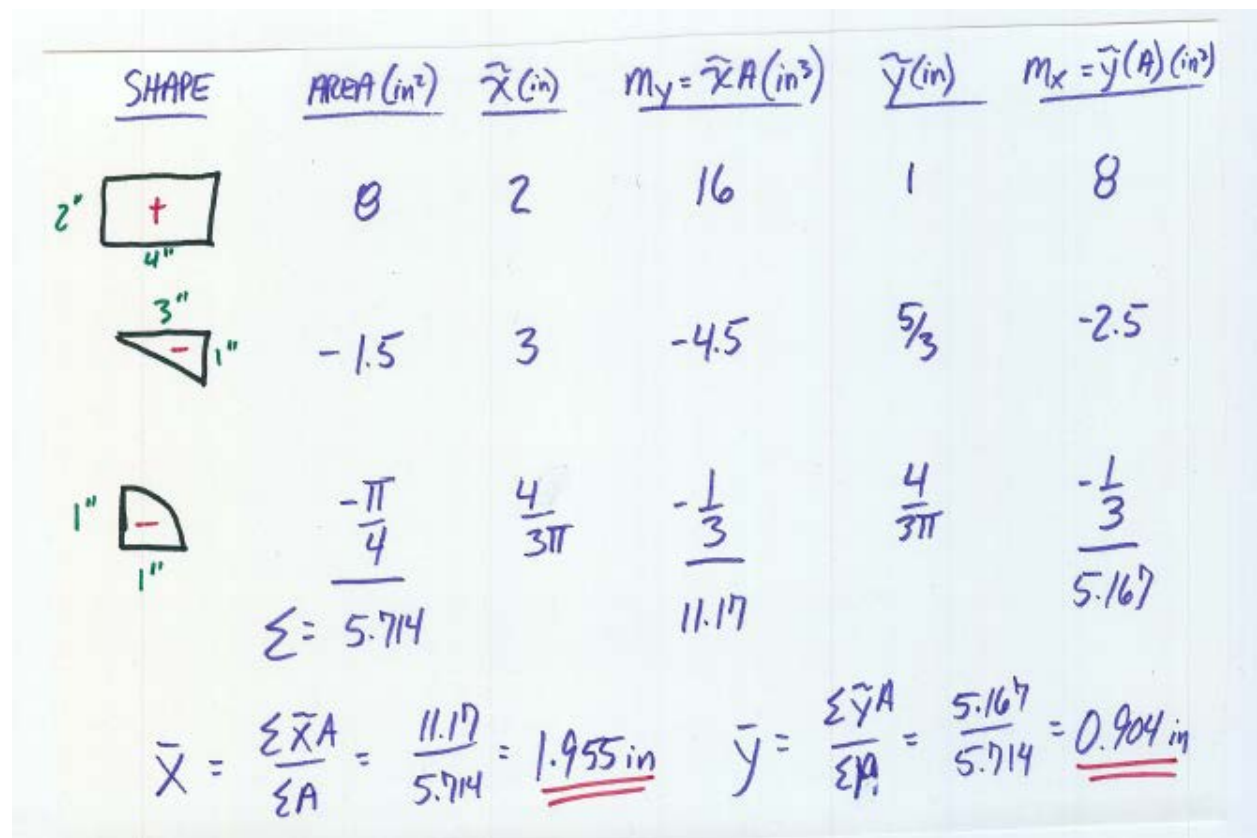 SHAPE AREA (in²) x̃ (in) My = x̃A (in³) ỹ (in) Mx = ỹ(A) (in³)
2" + 8 2 16 1 8
4"
3"
- 1" -1.5 3 -4.5 5/3 -2.5
1" - -π/4 4/3π -1/3 4/3π -1/3
1"
Σ = 5.714 11.17 5.167
x̄ = Σx̃A/ΣA = 11.17/5.714 = 1.955 in ȳ = ΣỹA/ΣA = 5.167/5.714 = 0.904 in